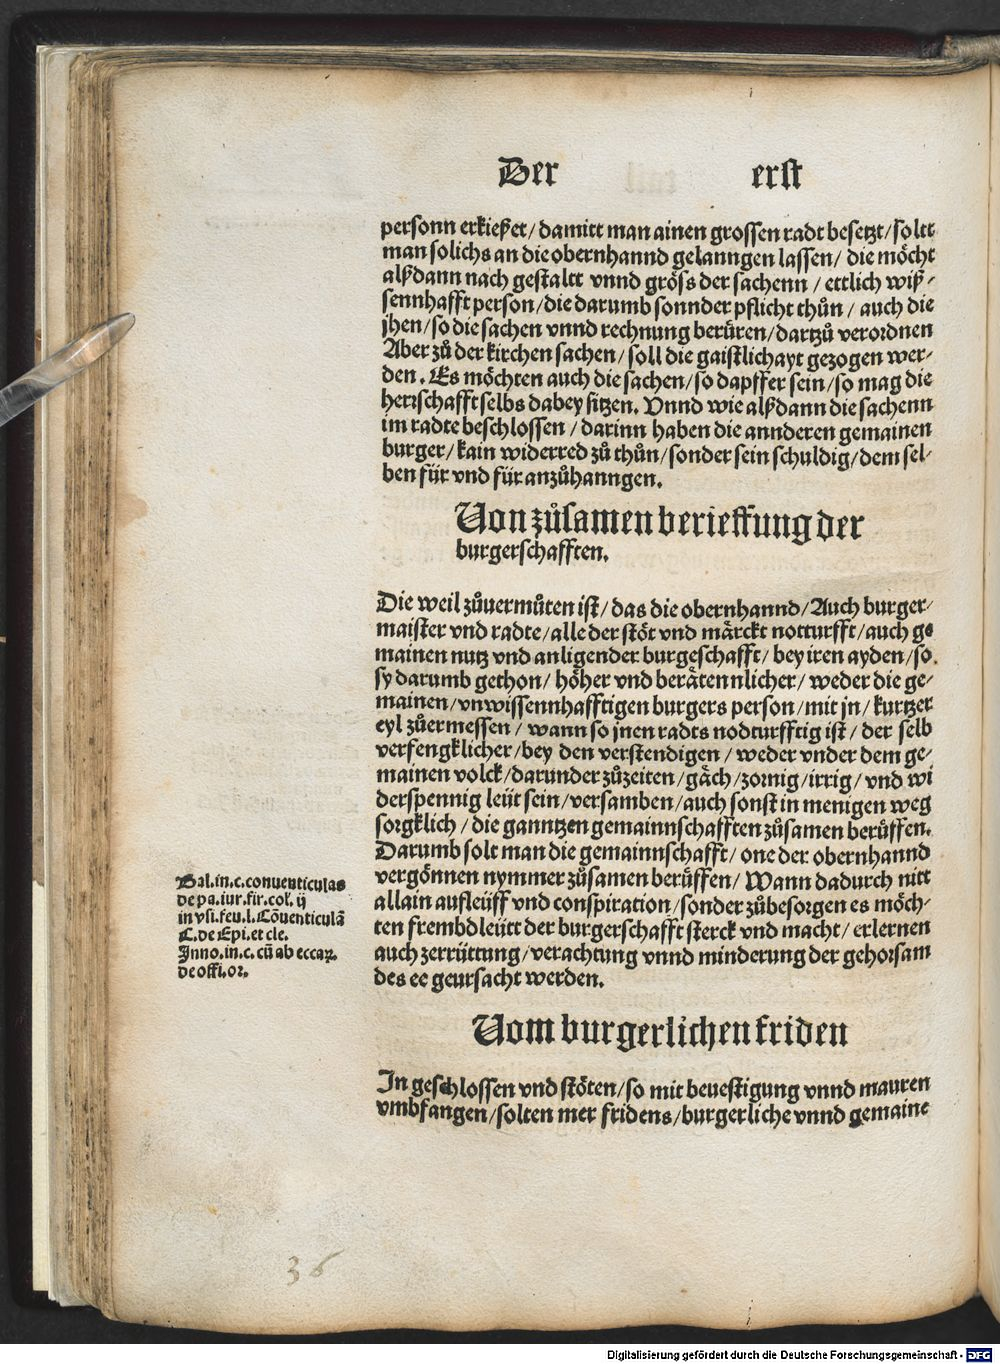 Der erst
personn erkießet/ damitt man ainen grossen radt besetzt/ soltt
man solichs an die obernhannd gelanngen lassen/ die möcht
alßdann nach gestaltt vnnd gröss der sachenn / ettlich wiß⸗
sennhafft person/ die darumb sonnder pflicht thůn / auch die
jhen/ so die sachen vnnd rechnung berüren/ dartzů verordnen
Aber zů der kirchen sachen/ soll die gaistlichayt gezogen wer⸗
den. Es möchten auch die sachen/ so dapffer sein/ so mag die
herrschafft selbs dabey sitzen. Vnnd wie alßdann die sachenn
im radte beschlossen / darinn haben die annderen gemainen
burger/ kain widerred zů thůn/ sonder sein schuldig/ dem sel⸗
ben für vnd für anzůhanngen.
Von zůsamen berieffung der
burgerschafften.
Die weil zůuermůten ist/ das die obernhannd/ Auch burger⸗
maister vnd radte/ alle der stöt vnd märckt notturfft/ auch ge
mainen nutz vnd anligender burgeschafft/ bey iren ayden/ so
sy darumb gethon/ höher vnd berätennlicher/ weder die ge⸗
mainen/ vnwissennhafftigen burgers person/ mit jn/ kurtzer
eyl zůermessen / wann so jnen radts nodturfftig ist/ der selb
verfengklicher/ bey den verstendigen / weder vnder dem ge⸗
mainen volck/ darunder zůzeiten/ gäch/ zornig/ irrig/ vnd wi
derspennig leüt sein/ versamben/ auch sonst in menigen weg
sorgklich / die ganntzen gemainnschafften zůsamen berüffen.
Darumb solt man die gemainnschafft/ one der obernhannd
vergönnen nymmer zůsamen berüffen/ Wann dadurch nitt
allain aufleüff vnd conspiration/ sonder zůbesorgen es möch⸗
ten frembdleütt der burgerschafft sterck vnd macht/ erlernen
auch zerrüttung/ verachtung vnnd minderung der gehorsam
des ee geursacht werden.
Bal.in.c.conuenticulas
de pa.iur.fir.col. ij
in vsi.feu.l.Cõuenticulã
C.de Epi.et cle.
Inno.in.c.cũ ab eccaꝝ.
de offi.or.
Vom burgerlichen friden
In geschlossen vnd stöten/ so mit beuestigung vnnd mauren
vmbfangen/ solten mer fridens/ burgerliche vnnd gemaine
36
Digitalisierung gefördert durch die Deutsche Forschungsgemeinschaft - DFG